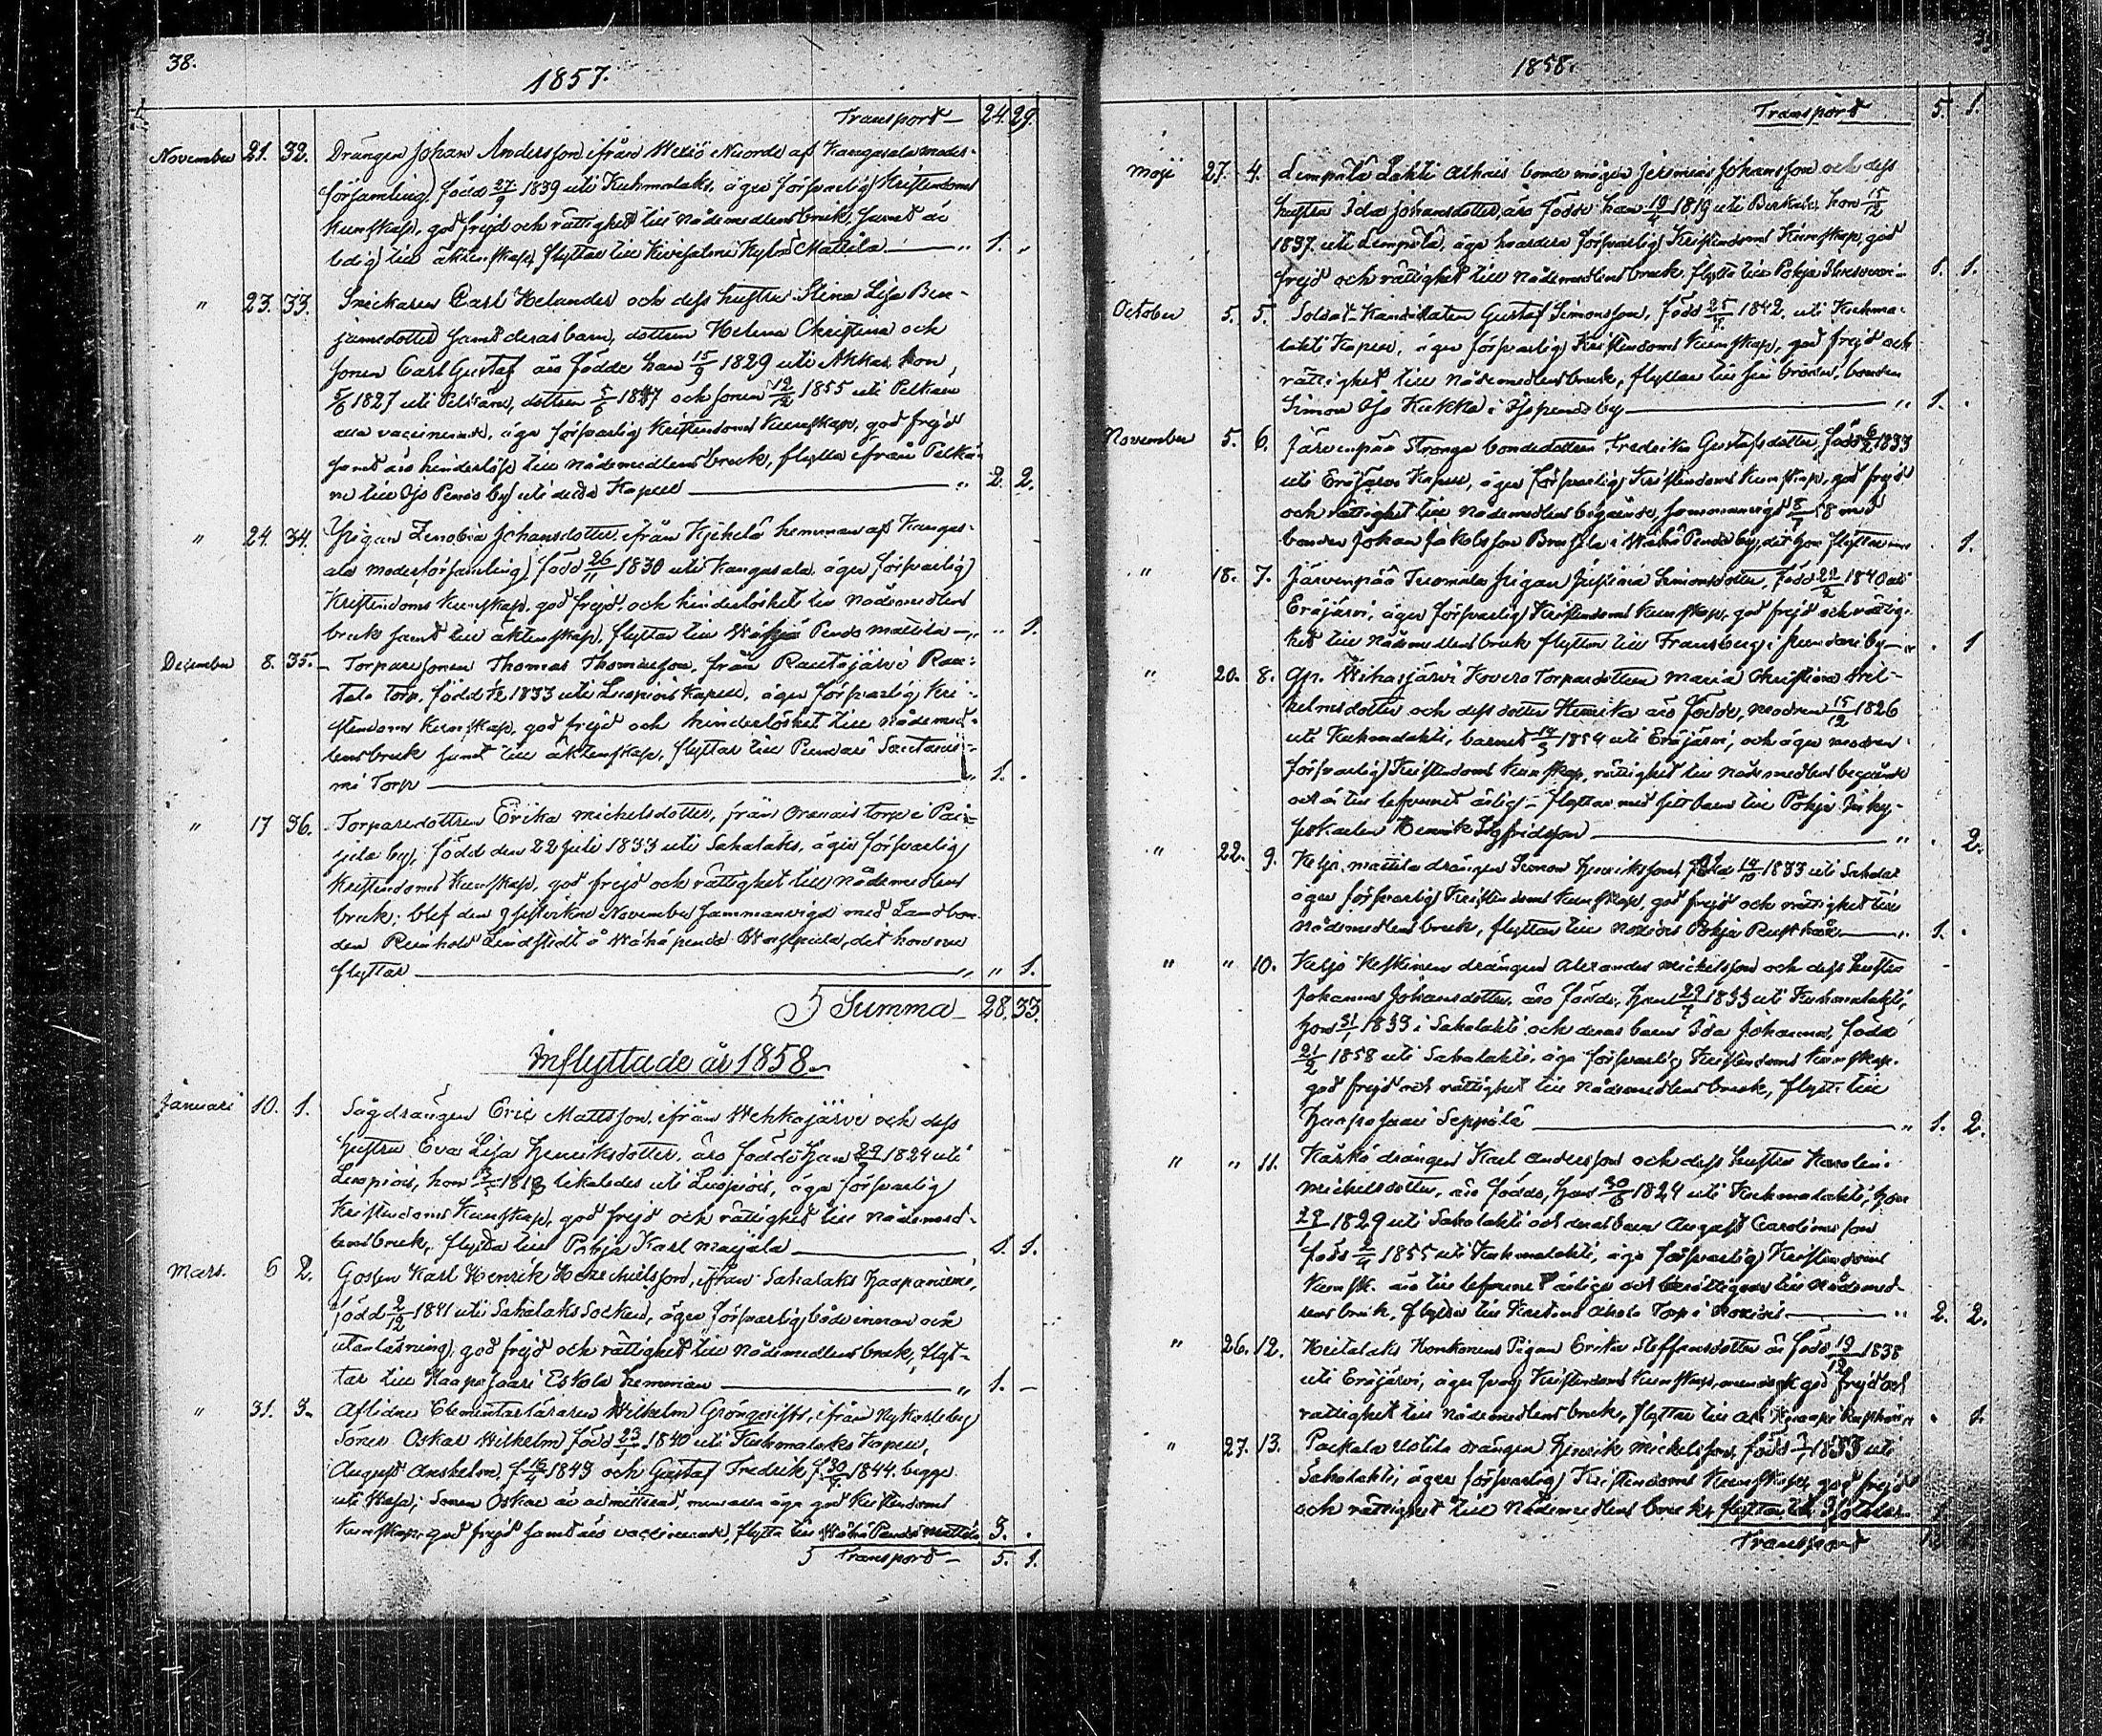 38.
1857.
Transport — 24. 29.
November 21. 32. Drängen Johan Andersson ifrån Wexiö Nuorde af Kangasala moder-
församling, född 27/9 1839 uti Kuhmalaks, äger försvarlig Kristendoms
kunskap, god frejd och rättighet till nådemedlens bruk, samt är
ledig till äktenskap, flyttar till Mattila — " 1. "
" 23. 33. Snickaren Carl Helander och dess hustru Stina Lisa Ben-
jamsdotter samt deras barn, dottren Helena Christina och
sonen Carl Gustaf äro födde han 15/9 1829 uti Akkas, hon
5/6 1827 uti Pelkäne, dottren 5/6 1847 och sonen 12/12 1855 uti Pelkäne
alla vaccinerade, äga försvarlig Kristendoms kunskap, god frejd
samt äro hinderlösa till nådemedlens bruk, flytta ifrån Pelkä-
ne till Iso Pendo by uti detta Kapell — " 2. 2.
" 24. 34. Pigan Zenobia Johansdotter, ifrån hemman af Kangas-
ala moderförsamling, född 26/11 1830 uti Kangasala, äger försvarlig
Kristendoms kunskap, god frejd, och hinderlöshet till nådemedlens
bruk samt till äktenskap, flyttar till Wähä Pendo Mattila — " " 1.
December 8. 35. – Torparesonen Thomas Thomasson, från Rautajärvi Rau-
tala torp, född 1/12 1833 uti Luopiois Kapell, äger försvarlig Kri-
stendoms kunskap, god frejd och hinderlöshet till nådemed-
lens bruk samt till äktenskap, flyttar till Puntari Santanie-
mi Torp — " 1. .
" 17 36. Torparedottren Erika Michelsdotter, från torp i
by, född den 22 Juli 1833 uti Sahalaks, äger försvarlig
Kristendoms kunskap, god frejd och rättighet till nådemedlens
bruk. blef den 9 sistvikne November sammanvigd med Landbon-
den Reinhold Lindstedt å Wähäpendo, dit hon nu
flyttar — " " 1.
Summa — 28. 33.
Inflyttade år 1858.
Januari 10. 1. Sågdrängen Eric Mattsson, ifrån Wehkajärvi och dess
hustru Eva Lisa Henriksdotter, äro födde han 29/9 1824 uti
Luopiois, hon 1818 likaledes uti Luopiois, äga försvarlig
Kristendoms kunskap, god frejd och rättighet till nådemed-
lens bruk, flytta till Pohja Karl Maijala — 1. 1.
Mars. 6 2. Gossen Karl Henrik Hezechielsson, ifrån Sahalaks Haapaniemi,
född 2/12 1841 uti Sahalaks Socken, äger försvarlig både innan och
utanläsning, god frejd och rättighet till nådemedlens bruk, flyt-
tar till Haapasaari Eskola hemman — " 1. –
" 31. 3. Aflidne Elementarläraren Wilhelm Grönqvists, ifrån Nykarleby
Söner Oskar Wilhelm född 23/7 1840 uti Kuhmalaks Kapell,
August Anshelm, f. 16/4 1843 och Gustaf Fredrik f. 30/9 1844. begge
uti Wasa; Sonen Oskar är admitterad, men alla äga god Kristendoms
kunskap, god frejd samt äro vaccinerade, flytta till Wähä Pendo Mattila 3. .
Transport — 5. 1.
1858.
Transport 5. 1.
Maji 27. 4. Lempälä Lahti Alhais bonde mågen Jeremias Johansson och dess
hustru Ida Johansdotter, äro födde han 19/4 1819 uti Birkala, hon 15/12
1837 uti Lempälä, äga hvardera försvarlig Kristendoms kunskap, god
frejd och rättighet till nådemedlens bruk, flytta till Pohja 1. 1.
October 5. 5. Soldat-Kandidaten Gustaf Simonsson, född 25/7 1842. uti Kuhma-
lahti Kapell, äger försvarlig Kristendoms kunskap, god frejd och
rättighet till nådemedlens bruk, flyttar till sin broder, bonden
Simon Iso Kukkola i Isopendo by — " 1. .
November 5. 6. Järvenpää Stronga bondedottren Fredrika Gustafsdotter, född 6/2 1833
uti Eräjärvi Kapell, äger försvarlig Kristendoms kunskap, god frejd
och rättighet till nådemedlens begående, sammanvigd 8/7 58 med
bonden Johan Jakobsson i Wähä Pendo by, dit hon flyttar nu . 1.
" 18. 7. Järvenpää Tuomala pigan Justina Simonsdotter, född 22/2 1840 uti
Eräjärvi, äger försvarlig Kristendoms kunskap, god frejd och rättig-
het till nådemedlens bruk flyttar till Fransberg i Puntari by — " . 1
" 20. 8. Wihasjärvi Kovero Torparedottren Maria Christina Wil-
helmsdotter och dess dotter Henrika äro födde, modren 15/12 1826
uti Kuhmalahti, barnet 14/3 1854 uti Eräjärvi, och äger modren
försvarlig Kristendoms kunskap, rättighet till nådemedlens begående
och är till lefvernet ärlig – flyttar med sitt barn till Pohja
Henrik Sigfridsson — " . 2.
" 22. 9. Keljo Mattila drängen Simon Henriksson, född 14/10 1833 uti Sahalax
äger försvarlig Kristendoms kunskap, god frejd och rättighet till
nådemedlens bruk, flyttar till Pohja Rusthåll — " 1. .
" " 10. Keljo Keskinens drängen Alexander Mickelsson och dess hustru
Johanna Johansdotter, äro födde, han 29/7 1833 uti Kuhmalahti,
hon 31/1 1833 i Sahalahti och deras barn Ida Johanna, född
21/2 1858 uti Sahalahti, äga försvarlig Kristendoms kunskap,
god frejd och rättighet till nådemedlens bruk, flytt. till
Haapasaari Seppälä — " 1. 2.
" " 11. drängen Karl Andersson och dess hustru Karolin.
Mickelsdotter, äro födde, han 30/6 1824 uti Kuhmalahti, hon
29/1 1829 uti Sahalahti och deras barn August Carolinus son
född 2/4 1855 uti Kuhmalahti, äga försvarlig Kristendoms
kunsk. äro till lefvernet ärliga och berättigade till nådemed-
lens bruk, flytta till Torp i — " 2. 2.
" 26. 12. Pigan Erika Steffansdotter är född 19/12 1838
uti Eräjärvi, äger svag Kristendoms kunskap, god frejd och
rättighet till nådemedlens bruk, flyttar till . 1.
" 27. 13. Paikala Ustila drängen Henrik Mickelsson, född 1833 uti
Sahalahti, äger försvarlig Kristendoms kunskap, god frejd
och rättighet till nådemedlens bruk, flyttar till 1.
Transport